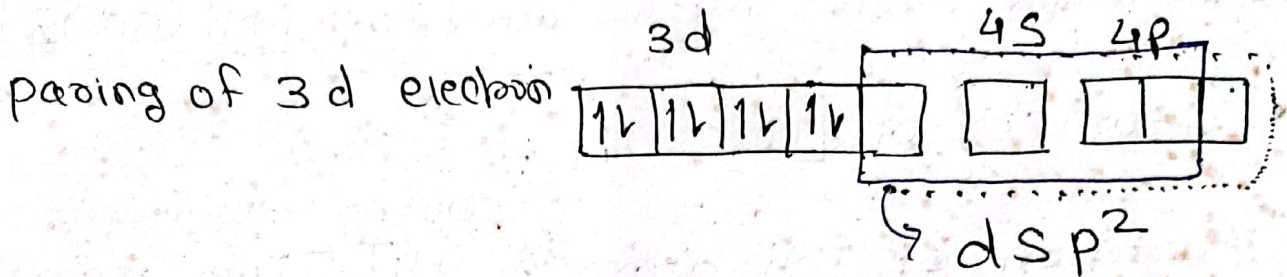 3d 4s 4p
paring of 3d electron 1L 1L 1L 1L
dsp²